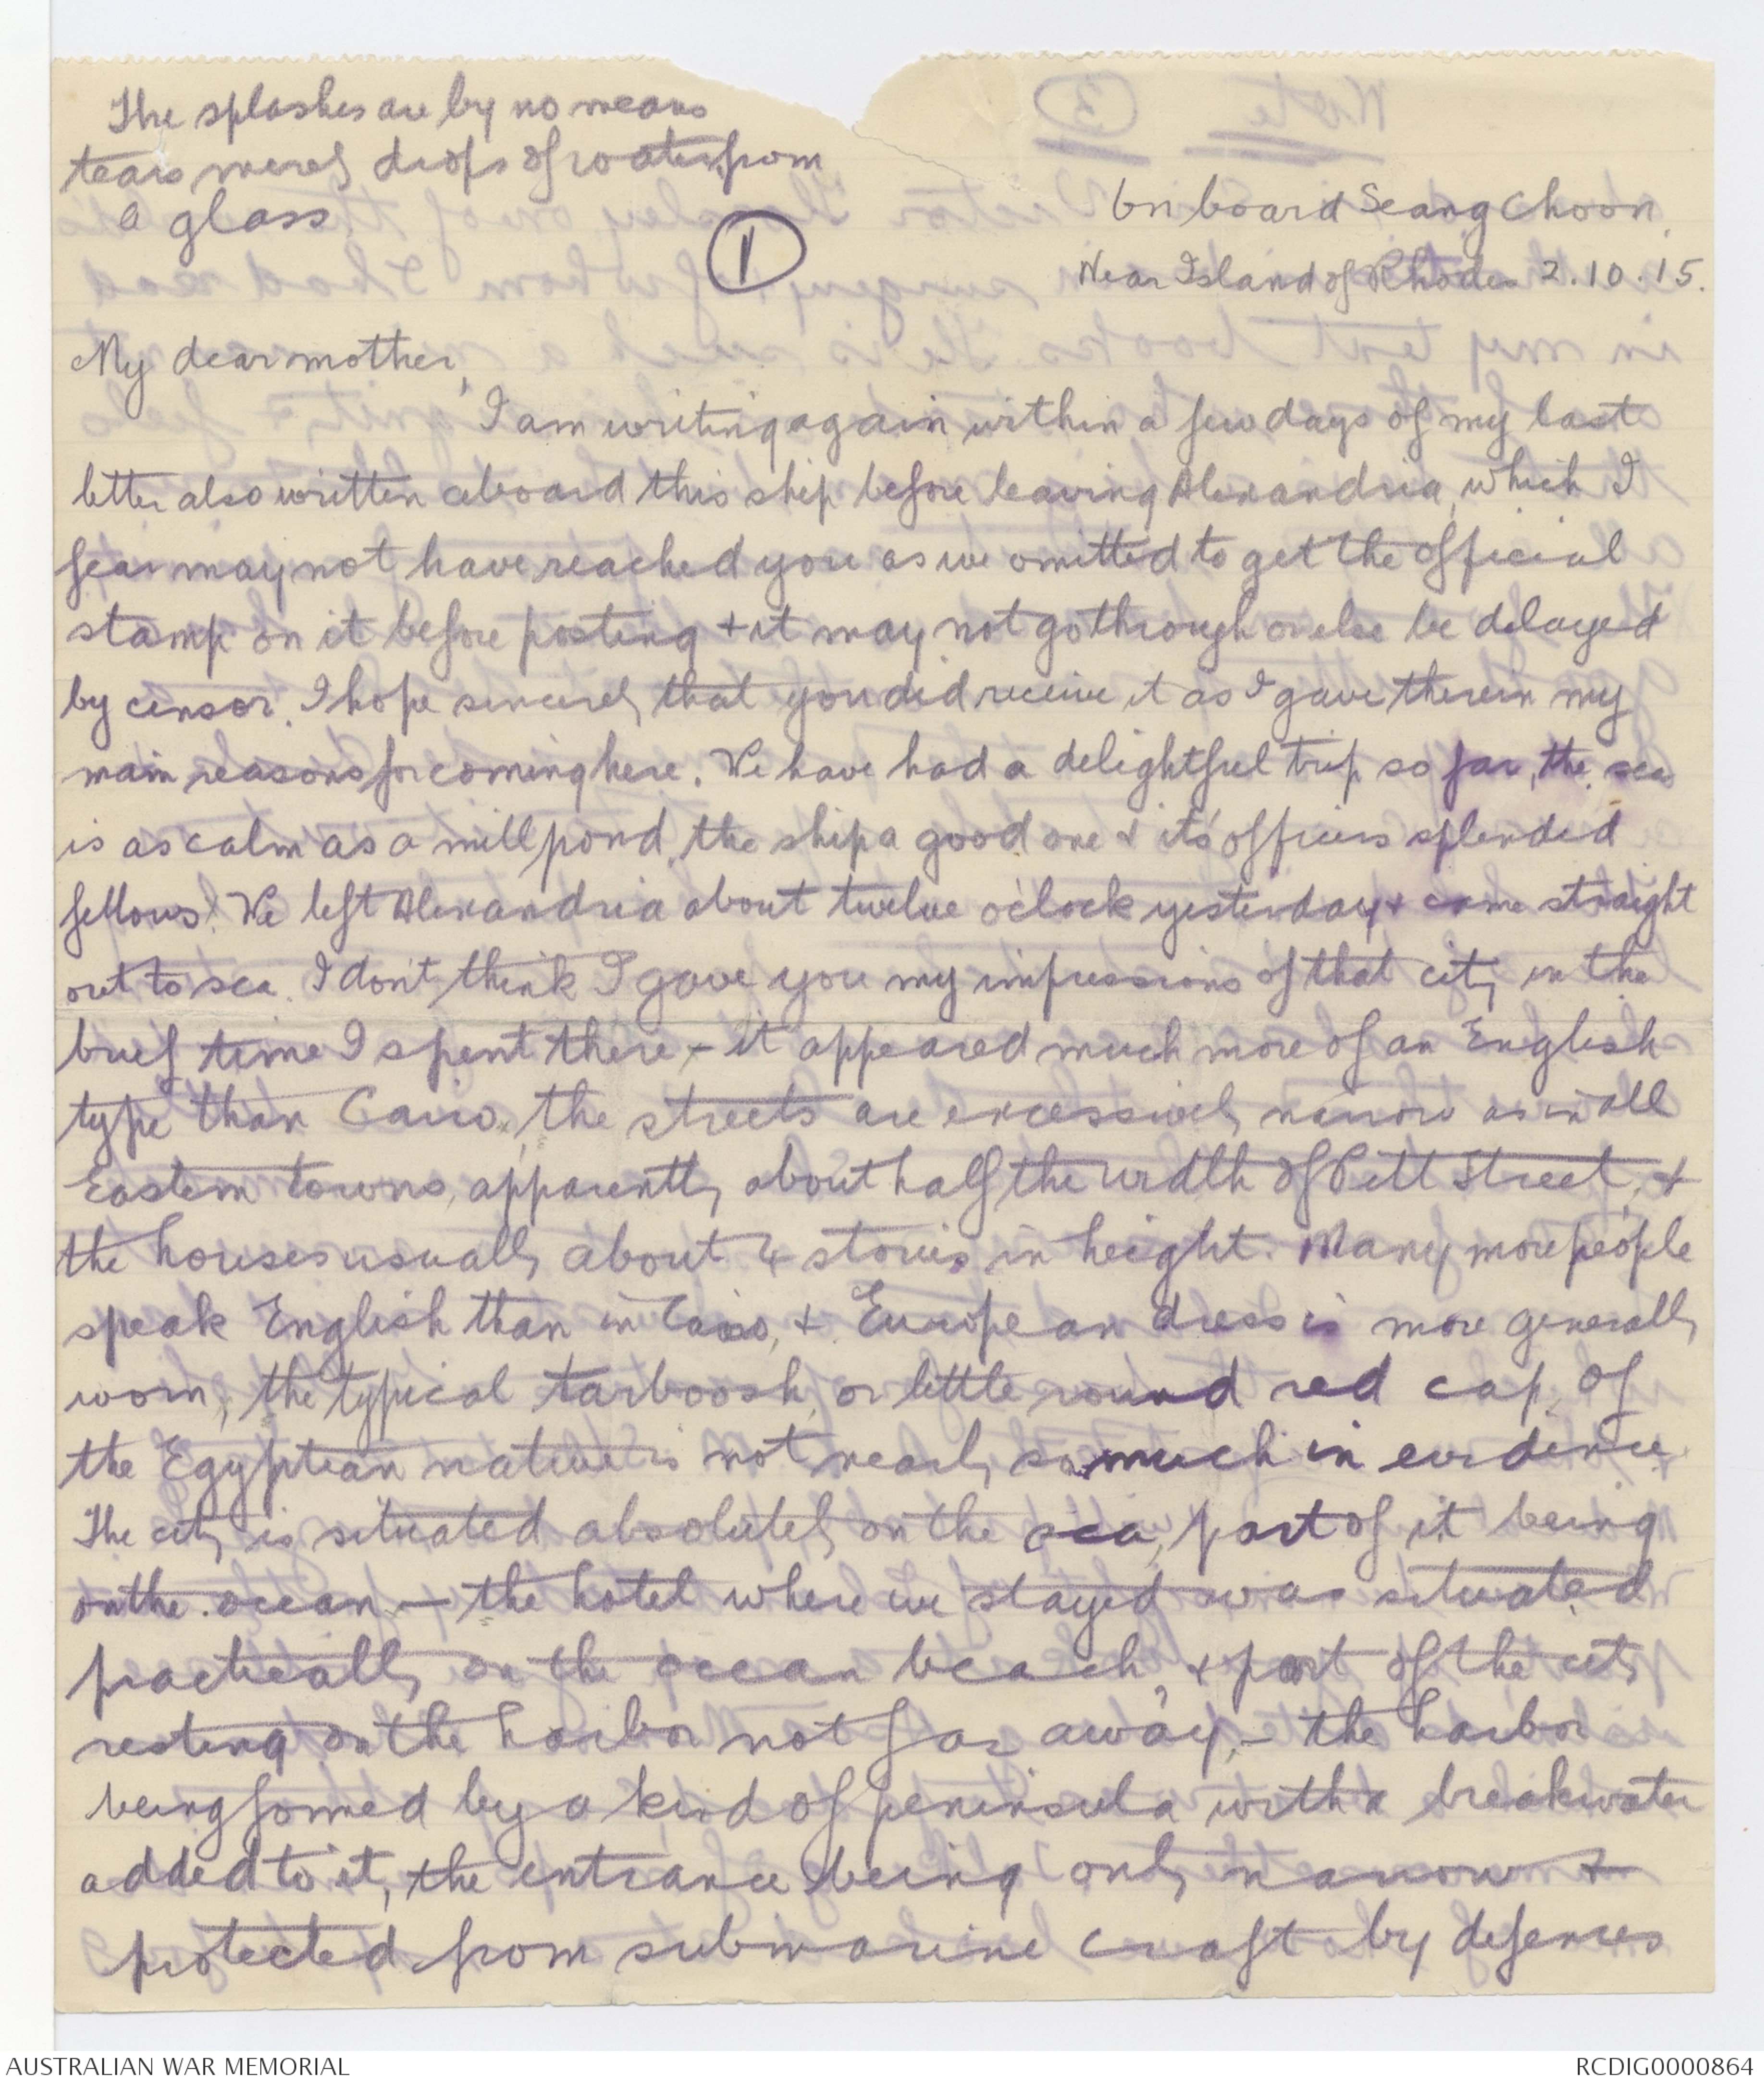 The splashes are by no means
tears merely drops of water from
a glass
1
On board Seang Choon
Near Island of Rhodes 2.10.15.
My dear mother,
I am writing again within a few days of my last
letter also written aboard this ship before leaving Alexandria, which I
fear may not have reached you as we omitted to get the official
stamp on it before posting & it may not go through or else be delayed
by censor. I hope sincerely that you did receive it as I gave therein my
main reasons for coming here. We have had a delightful trip so far, the sea
is as calm as a mill pond, the ship a good one & its officers splendid
fellows. We left Alexandria about twelve o'clock yesterday & came straight
out to sea. I don't think I gave you my impressions of that city in the
brief time I spent there, - it appeared much more of an English
type than Cairo, the streets are excessively narrow as in all
Eastern towns, apparently about half the width of Pitt Street, &
the houses usually about 4 stories in height. Many more people
speak English than in Cairo, & European dress is more generally
worn, the typical tarboosh, or little round red cap, of
the Egyptian native is not nearly so much in evidence.
The city is situated absolutely on the sea, part of it being
on the ocean - the hotel where we stayed was situated
practically on the ocean beach, & part of the city
resting on the harbor not far away, - the harbor
being formed by a kind of peninsula with a breakwater
added to it, the entrance being only narrow &
protected from submarine craft by defences
AUSTRALIAN WAR MEMORIAL
RCDIG0000864